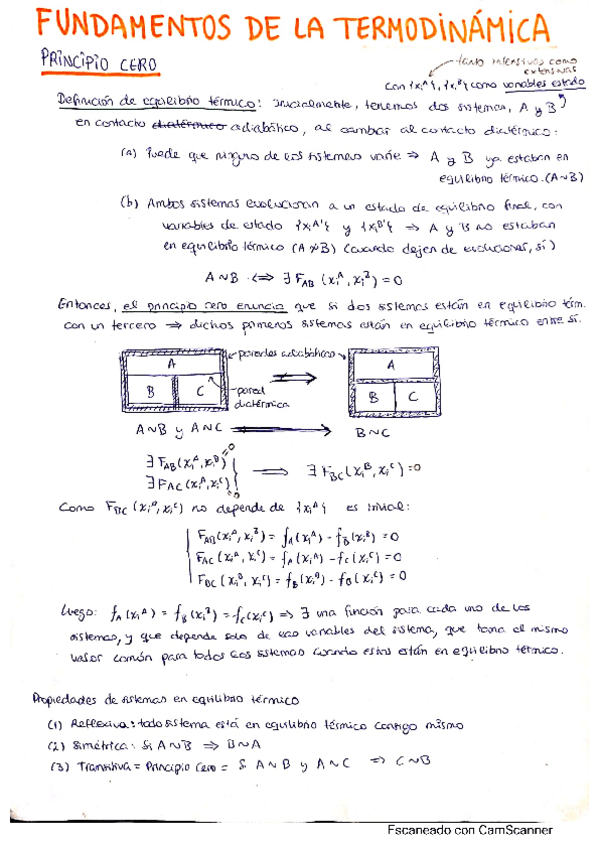 FUNDAMENTOS DE LA TERMODINÁMICA
PRINCIPIO CERO
tanto intensivas como
extensivas
con {xᵢᴬ}, {xᵢᴮ} como variables estado
Definición de equilibrio térmico: Inicialmente, tenemos dos sistemas, A y B
en contacto diatérmico adiabático, al cambiar al contacto diatérmico:
(a) Puede que ninguno de los sistemas varíe ⇒ A y B ya estaban en
equilibrio térmico. (A~B)
(b) Ambos sistemas evolucionan a un estado de equilibrio final, con
variables de estado {xᵢᴬ'} y {xᵢᴮ'} ⇒ A y B no estaban
en equilibrio térmico (A≁B) (cuando dejen de evolucionar, sí)
A~B ⇔ ∃ F_AB (xᵢᴬ, xᵢᴮ) = 0
Entonces, el principio cero enuncia que si dos sistemas están en equilibrio térm.
con un tercero ⇒ dichos primeros sistemas están en equilibrio térmico entre sí.
A
B
C
paredes adiabáticas
pared
diatérmica
A
B
C
A~B y A~C ⟹ B~C
∃ F_AB (xᵢᴬ, xᵢᴮ) = 0
∃ F_AC (xᵢᴬ, xᵢᶜ) = 0
⟹ ∃ F_BC (xᵢᴮ, xᵢᶜ) = 0
Como F_BC (xᵢᴮ, xᵢᶜ) no depende de {xᵢᴬ} es trivial:
F_AB (xᵢᴬ, xᵢᴮ) = f_A (xᵢᴬ) - f_B (xᵢᴮ) = 0
F_AC (xᵢᴬ, xᵢᶜ) = f_A (xᵢᴬ) - f_C (xᵢᶜ) = 0
F_BC (xᵢᴮ, xᵢᶜ) = f_B (xᵢᴮ) - f_C (xᵢᶜ) = 0
Luego: f_A (xᵢᴬ) = f_B (xᵢᴮ) = f_C (xᵢᶜ) ⇒ ∃ una función para cada uno de los
sistemas, y que depende solo de las variables del sistema, que toma el mismo
valor común para todos los sistemas cuando estos están en equilibrio térmico.
Propiedades de sistemas en equilibrio térmico
(1) Reflexiva: todo sistema está en equilibrio térmico consigo mismo
(2) Simétrica: Si A~B ⇒ B~A
(3) Transitiva = Principio Cero = Si A~B y A~C ⇒ C~B
Escaneado con CamScanner